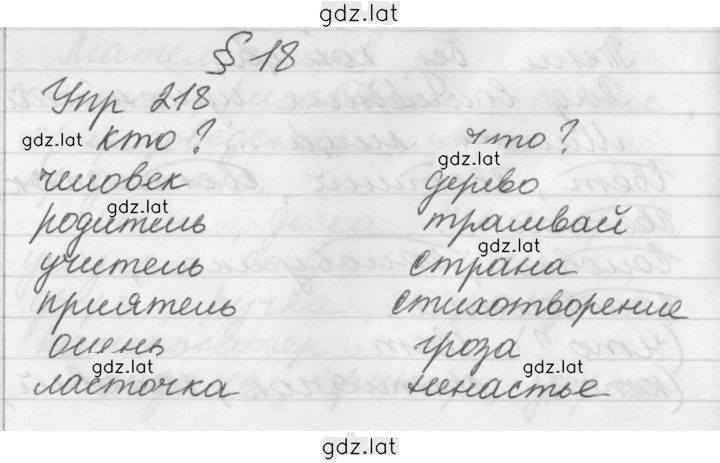 gdz.lat
§ 18
Упр 218
gdz.lat кто? что?
gdz.lat
человек дерево
gdz.lat
родитель трамвай
gdz.lat
учитель страна
приятель стихотворение
олень гроза
gdz.lat gdz.lat
ласточка ненастье
gdz.lat